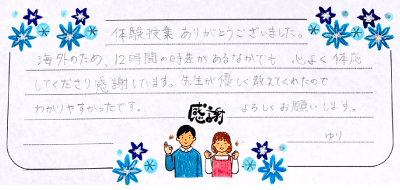 体験授業ありがとうございました。
海外のため、12時間の時差があるなかでも 心よく体応
してくださり感謝しています。先生が優しく教えてくれたので
わかりやすかったです。 よろしくお願いします。
感謝
ゆり